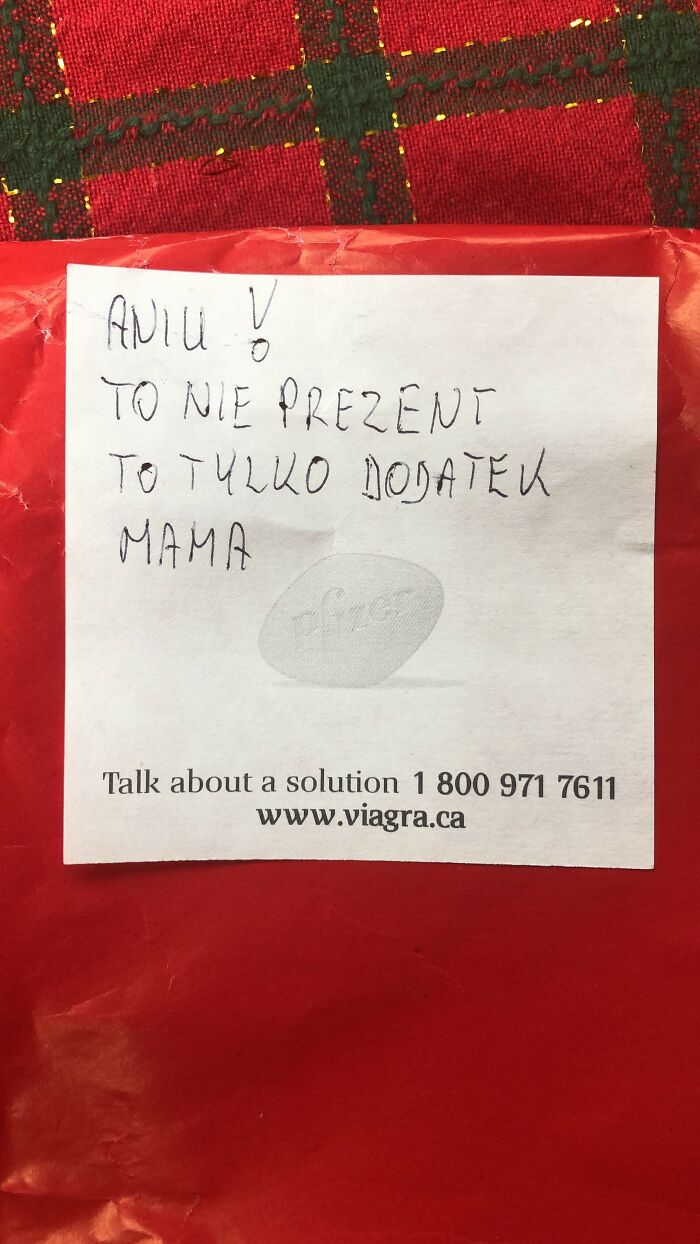 ANIU !
TO NIE PREZENT
TO TYLKO DODATEK
MAMA
pfizer
Talk about a solution 1 800 971 7611
www.viagra.ca